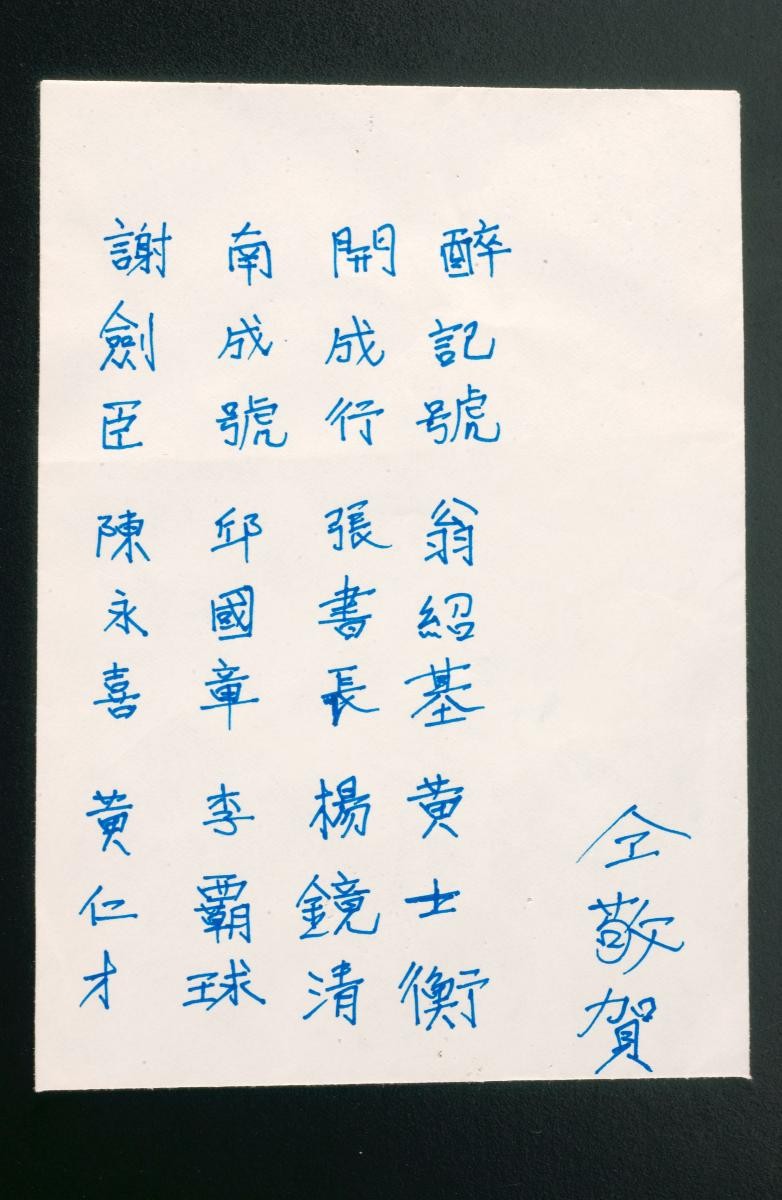 仝敬賀
醉記號 翁紹基 黄士衡
開成行 張書長 楊鏡清
南成號 邱國章 李覇球
謝劍臣 陳永喜 黄仁才